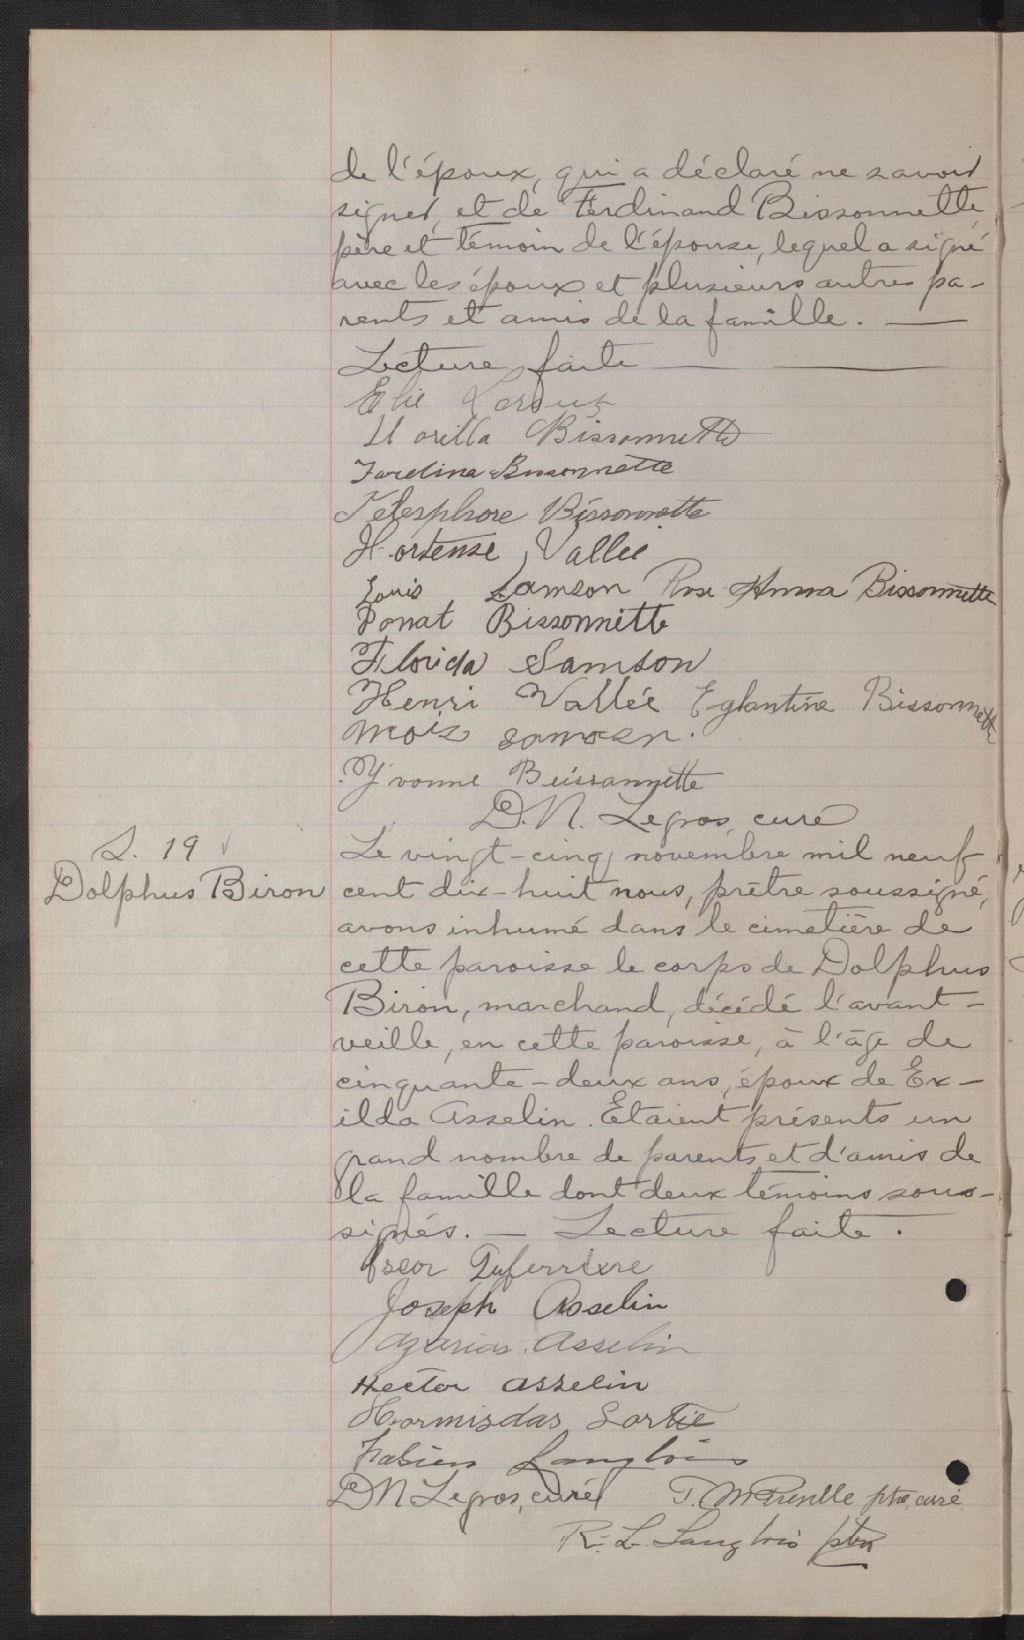 de l'époux, qui a déclaré ne savoir
signer, et de Ferdinand Bissonnette,
père et témoin de l'épouse, lequel a signé
avec les époux et plusieurs autres pa-
rents et amis de la famille. —
Lecture faite —
Elie
Bissonnette
Bissonnette
Télesphore Bissonnette
Hortense Vallée
Louis Samson Rose Anna Bissonnette
Donat Bissonnette
Florida Samson
Henri Vallée Eglantine Bissonnette
Mois Samson.
Yvonne Beissannette
D. N. Legros, curé
S. 19
Dolphus Biron
Le vingt-cinq novembre mil neuf
cent dix-huit nous, prêtre soussigné,
avons inhumé dans le cimetière de
cette paroisse le corps de Dolphus
Biron, marchand, décédé l'avant-
veille, en cette paroisse, à l'âge de
cinquante-deux ans, époux de Ex-
ilda Asselin. Étaient présents un
grand nombre de parents et d'amis de
la famille dont deux témoins sous-
signés. — Lecture faite.
Oscar
Joseph Asselin
Azarias Asselin
Hector Asselin
Hormisdas Sortie
Fabien Langlois
D N Legros, curé ptre curé
R. L. Langlois ptre